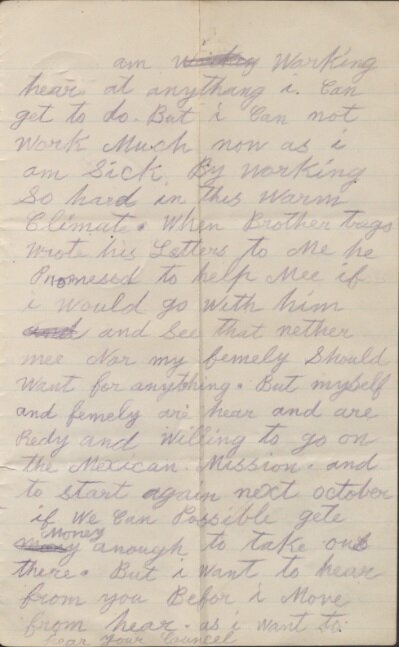 am Working
hear at anythang i. Can
get to do. But i Can not
Work Much now as i
am Sick. By Working
So hard in this Warm
Climate. When Brother trego
Wrote his Letters to Me he
Promessd to help Mee if
i Would go With him
and and See that nether
mee Nor my femely Should
Want for anything. But myself
and femely are hear and are
Redy and Willing to go on
the Mexican Mission. and
to start again next october
if We Can Possible gete
Money anough to take ous
there. But i Want to hear
from you Befor i Move
from hear. as i want to
hear Your Councel